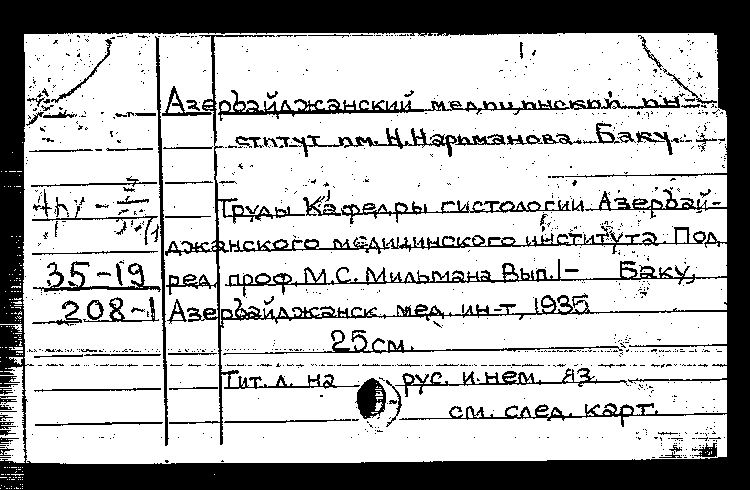 1.
Азербайджанский медицинский ин-
ститут им. Н. Нариманова. Баку.
Труды Кафедры гистологии Азербай-
джанского медицинского института. Под
35-19 ред. проф. М.С. Мильмана Вып. 1- Баку,
208-1 Азербайджанск. мед. ин-т, 1935
25 см.
Тит. л. на рус. и нем. яз.
см. след. карт.